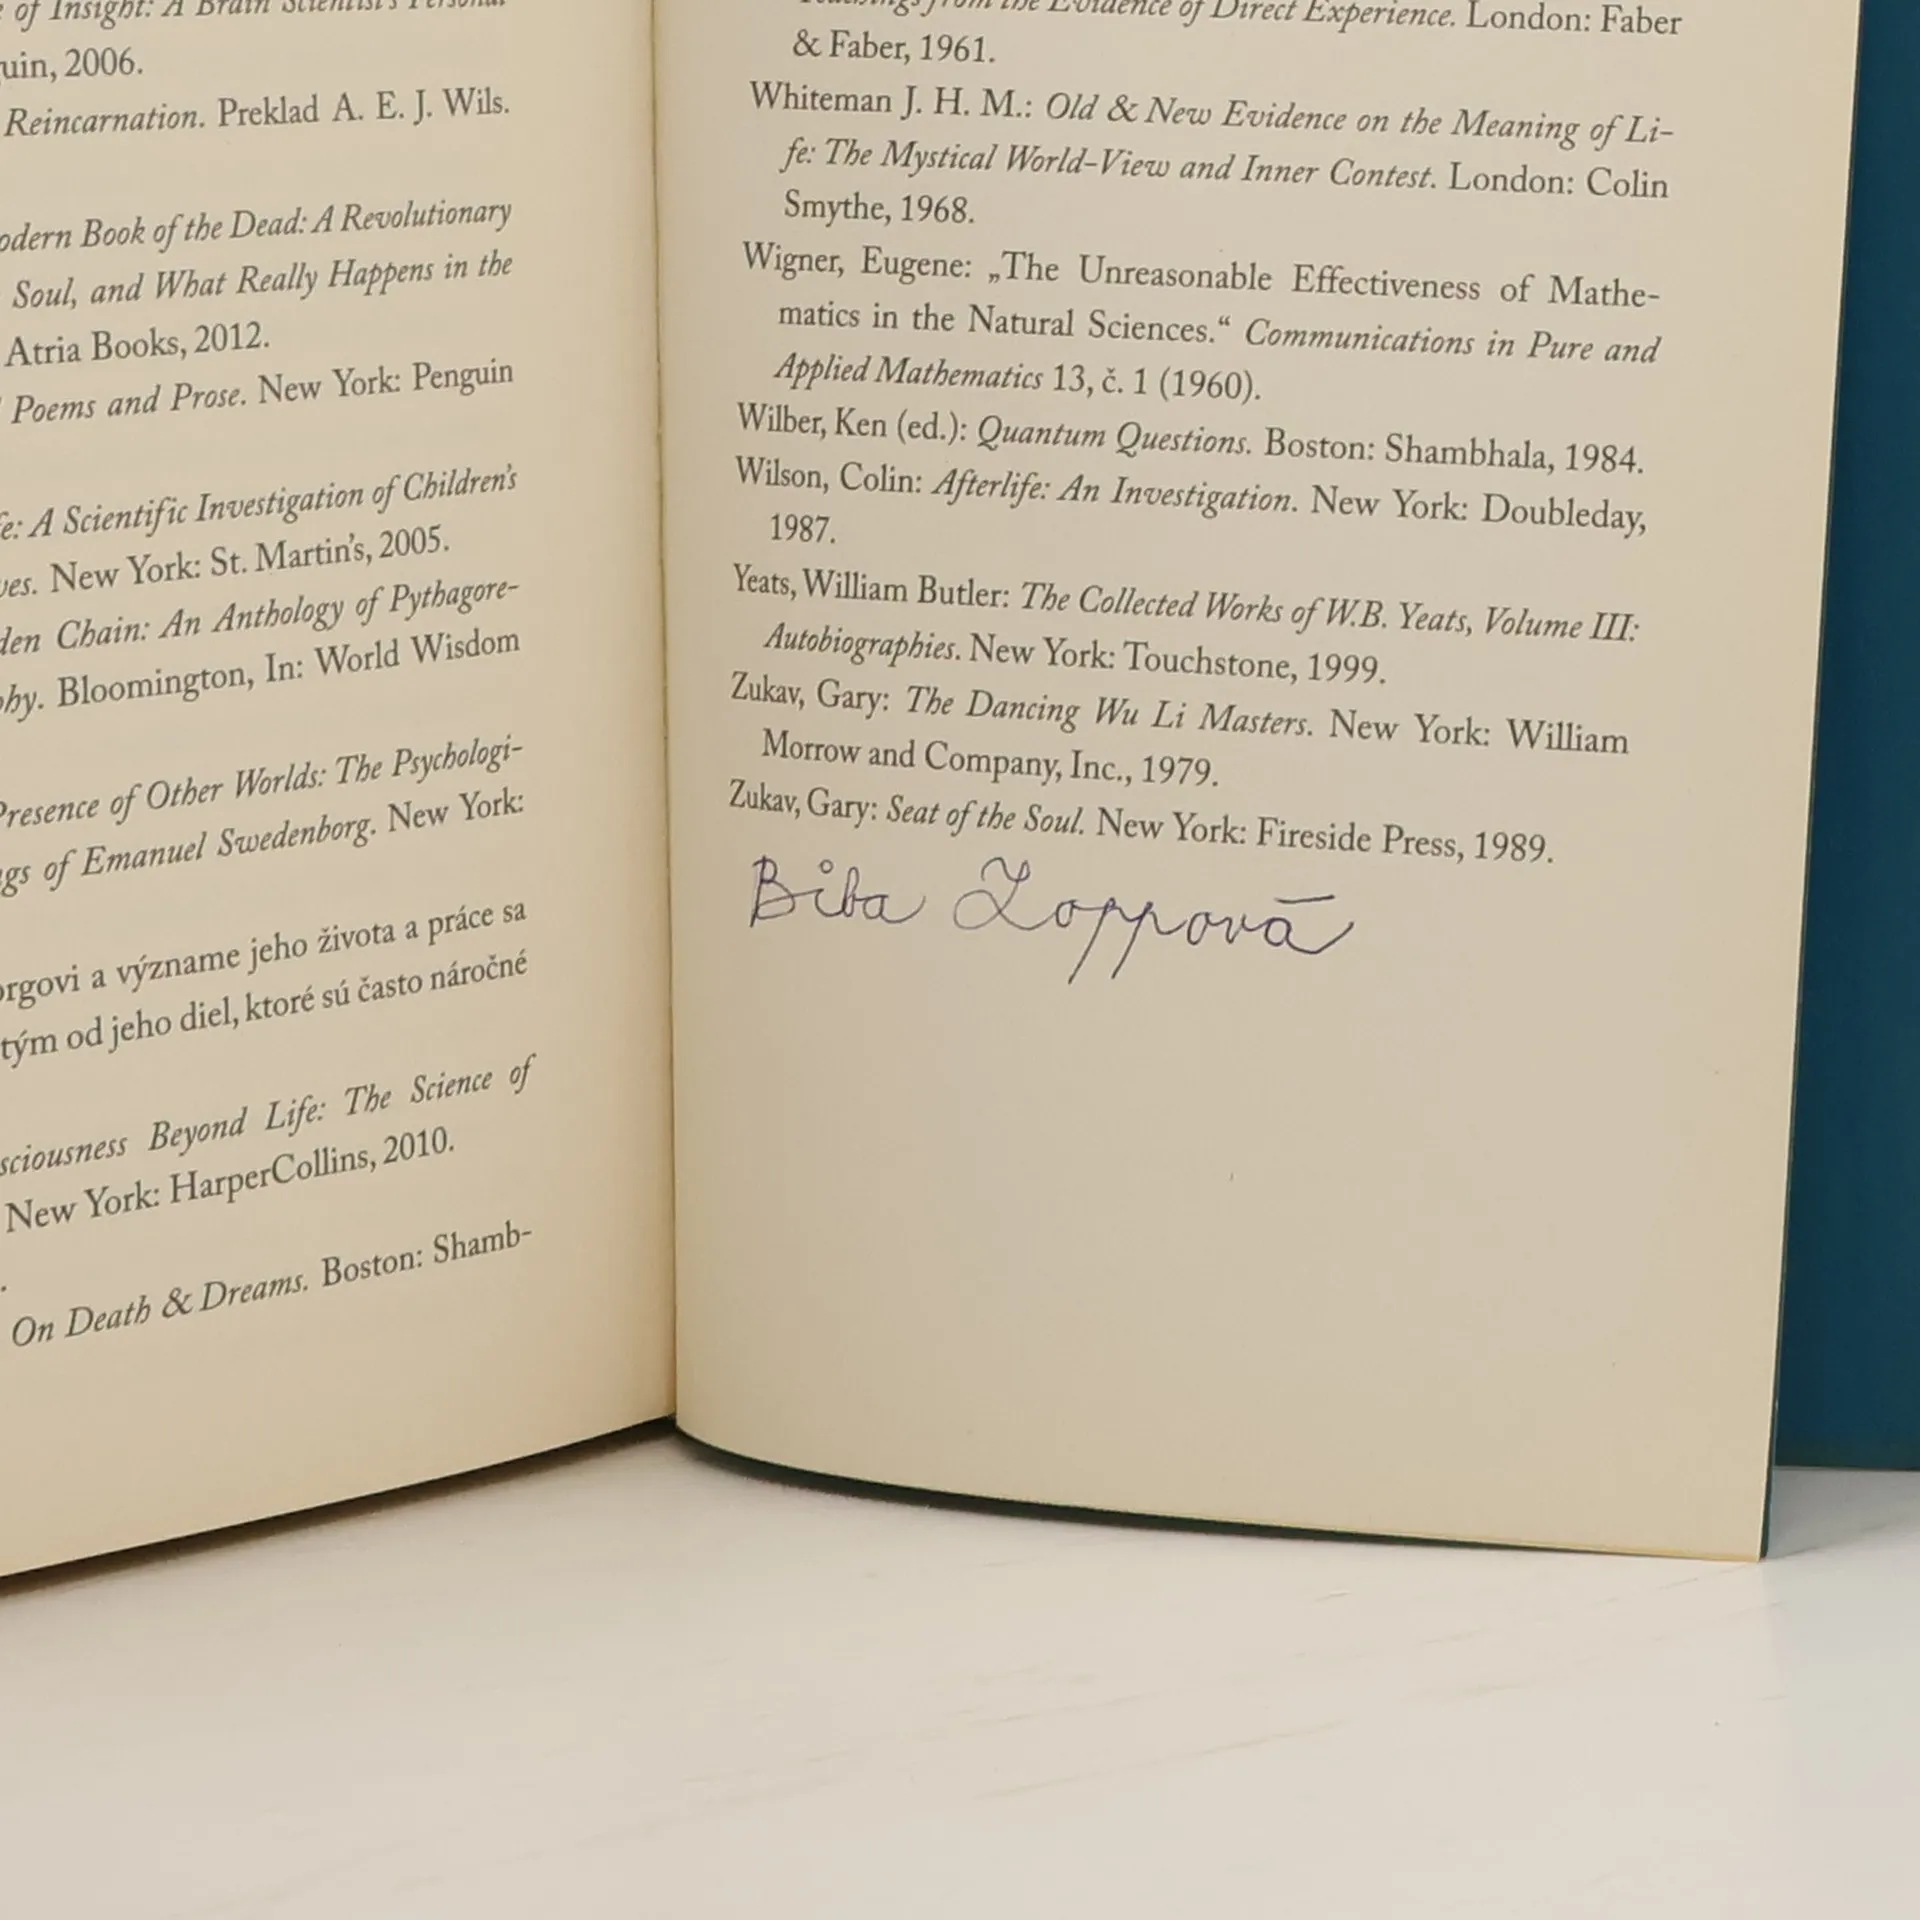 of Insight: A Brain Scientist's Personal
uin, 2006.
Reincarnation. Preklad A. E. J. Wils.
odern Book of the Dead: A Revolutionary
Soul, and What Really Happens in the
Atria Books, 2012.
Poems and Prose. New York: Penguin
fe: A Scientific Investigation of Children's
ves. New York: St. Martin's, 2005.
den Chain: An Anthology of Pythagore-
phy. Bloomington, In: World Wisdom
Presence of Other Worlds: The Psychologi-
ngs of Emanuel Swedenborg. New York:
orgovi a význame jeho života a práce sa
tým od jeho diel, ktoré sú často náročné
sciousness Beyond Life: The Science of
New York: HarperCollins, 2010.
.
On Death & Dreams. Boston: Shamb-
Teachings from the Evidence of Direct Experience. London: Faber
& Faber, 1961.
Whiteman J. H. M.: Old & New Evidence on the Meaning of Li-
fe: The Mystical World-View and Inner Contest. London: Colin
Smythe, 1968.
Wigner, Eugene: „The Unreasonable Effectiveness of Mathe-
matics in the Natural Sciences.“ Communications in Pure and
Applied Mathematics 13, č. 1 (1960).
Wilber, Ken (ed.): Quantum Questions. Boston: Shambhala, 1984.
Wilson, Colin: Afterlife: An Investigation. New York: Doubleday,
1987.
Yeats, William Butler: The Collected Works of W.B. Yeats, Volume III:
Autobiographies. New York: Touchstone, 1999.
Zukav, Gary: The Dancing Wu Li Masters. New York: William
Morrow and Company, Inc., 1979.
Zukav, Gary: Seat of the Soul. New York: Fireside Press, 1989.
Biba Loppová